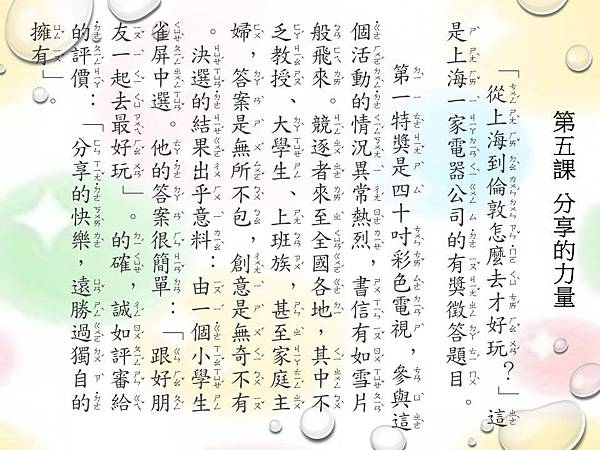 第五課 分享的力量
「從上海到倫敦怎麼去才好玩？」這
是上海一家電器公司的有獎徵答題目。
第一特獎是四十吋彩色電視，參與這
個活動的情況異常熱烈，書信有如雪片
般飛來。競逐者來至全國各地，其中不
乏教授、大學生、上班族，甚至家庭主
婦，答案是無所不包，創意是無奇不有
。決選的結果出乎意料：由一個小學生
雀屏中選。他的答案很簡單：「跟好朋
友一起去最好玩」。的確，誠如評審給
的評價：「分享的快樂，遠勝過獨自的
擁有」。